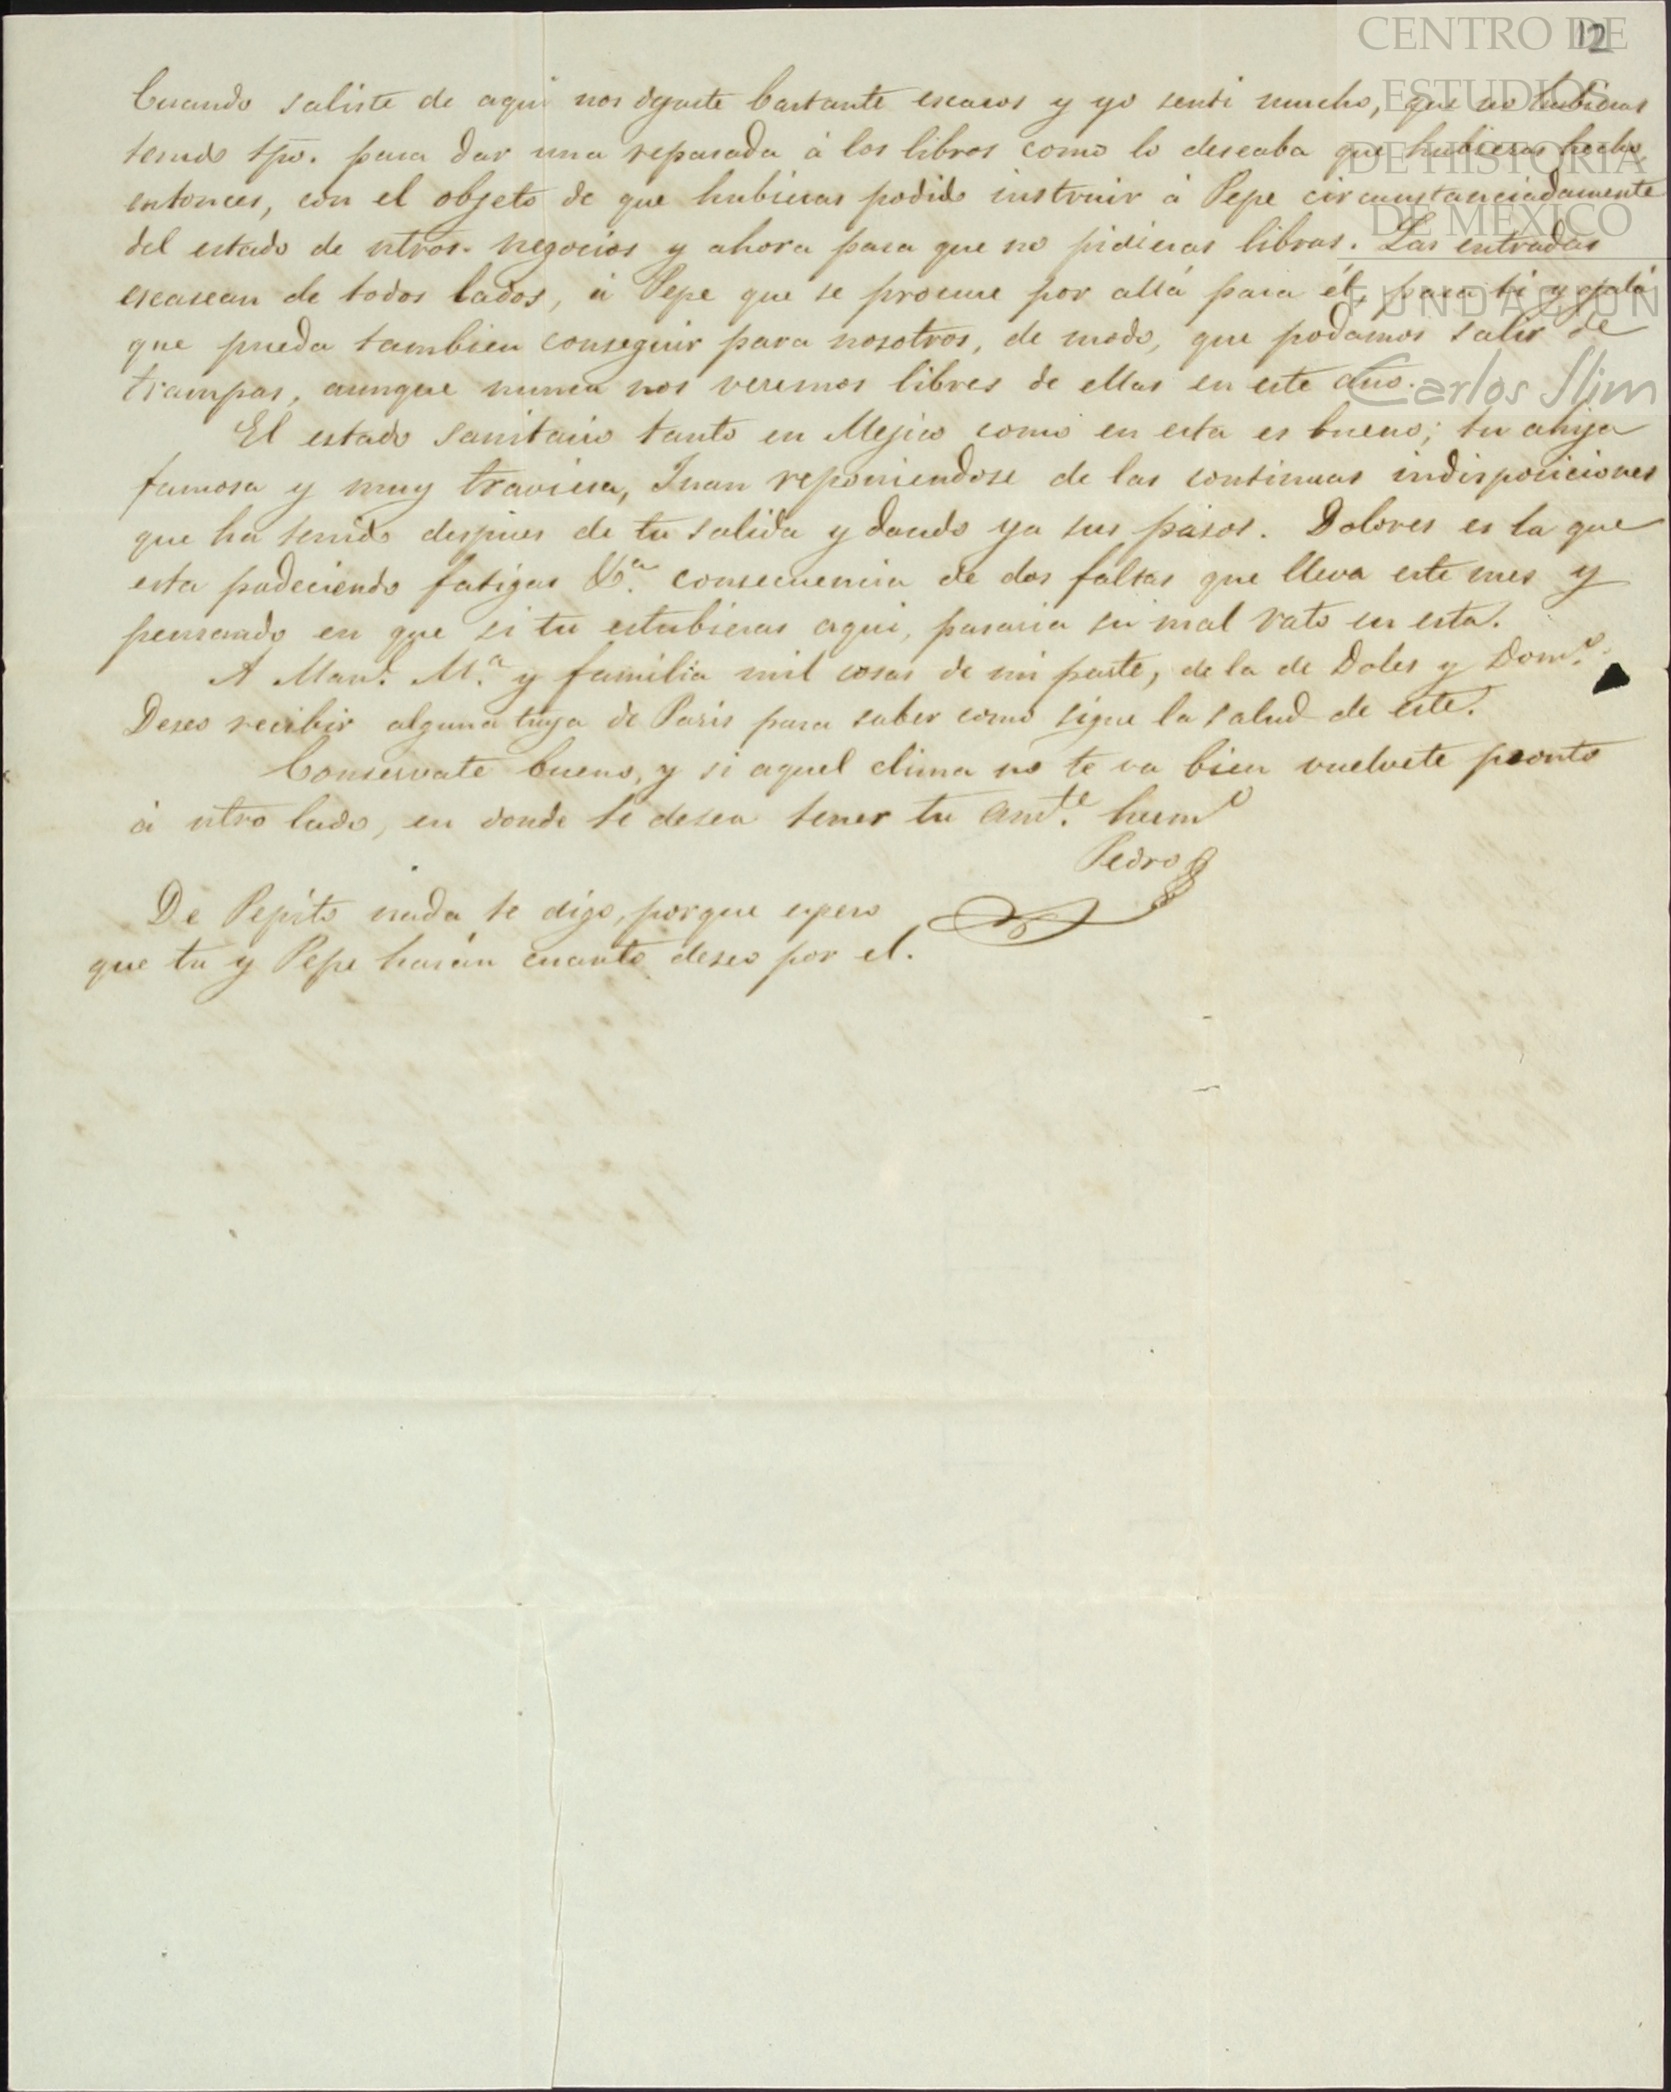 12
CENTRO DE
ESTUDIOS
DE HISTORIA
DE MEXICO
FUNDACION
Carlos Slim
Cuando saliste de aqui nos dejaste bastante escasos y yo senti mucho, que no hubieras
tenido tpo. para dar una repasada á los libros como lo deseaba que hubieras hecho
entonces, con el objeto de que hubieras podido instruir á Pepe circunstanciadamente
del estado de ntros. negocios y ahora para que no pidieras libras. Las entradas
escasean de todos lados, á Pepe que se procure por allá para él, para ti y ojalá
que pueda tambien conseguir para nosotros, de modo, que podamos salir de
trampas, aunque nunca nos veremos libres de ellas en este año.
El estado sanitario tanto en Mejico como en esta es bueno; tu ahija
famosa y muy traviesa, Juan reponiendose de las continuas indisposiciones
que ha tenido despues de tu salida y dando ya sus pasos. Dolores es la que
esta padeciendo fatigas &.a consecuencia de dos faltas que lleva este mes y
pensando en que si tu estubieras aqui, pasaria su mal rato en esta.
A Man.l M.a y familia mil cosas de mi parte, de la de Doles y Dom.o
Deseo recibir alguna tuya de Paris para saber como sigue la salud de este.
Conservate bueno, y si aquel clima no te va bien vuelvete pronto
á ntro lado, en donde te desea tener tu am.te herm.o
Pedro
De Pepito nada te digo, porque espero
que tu y Pepe harán cuanto deseo por el.